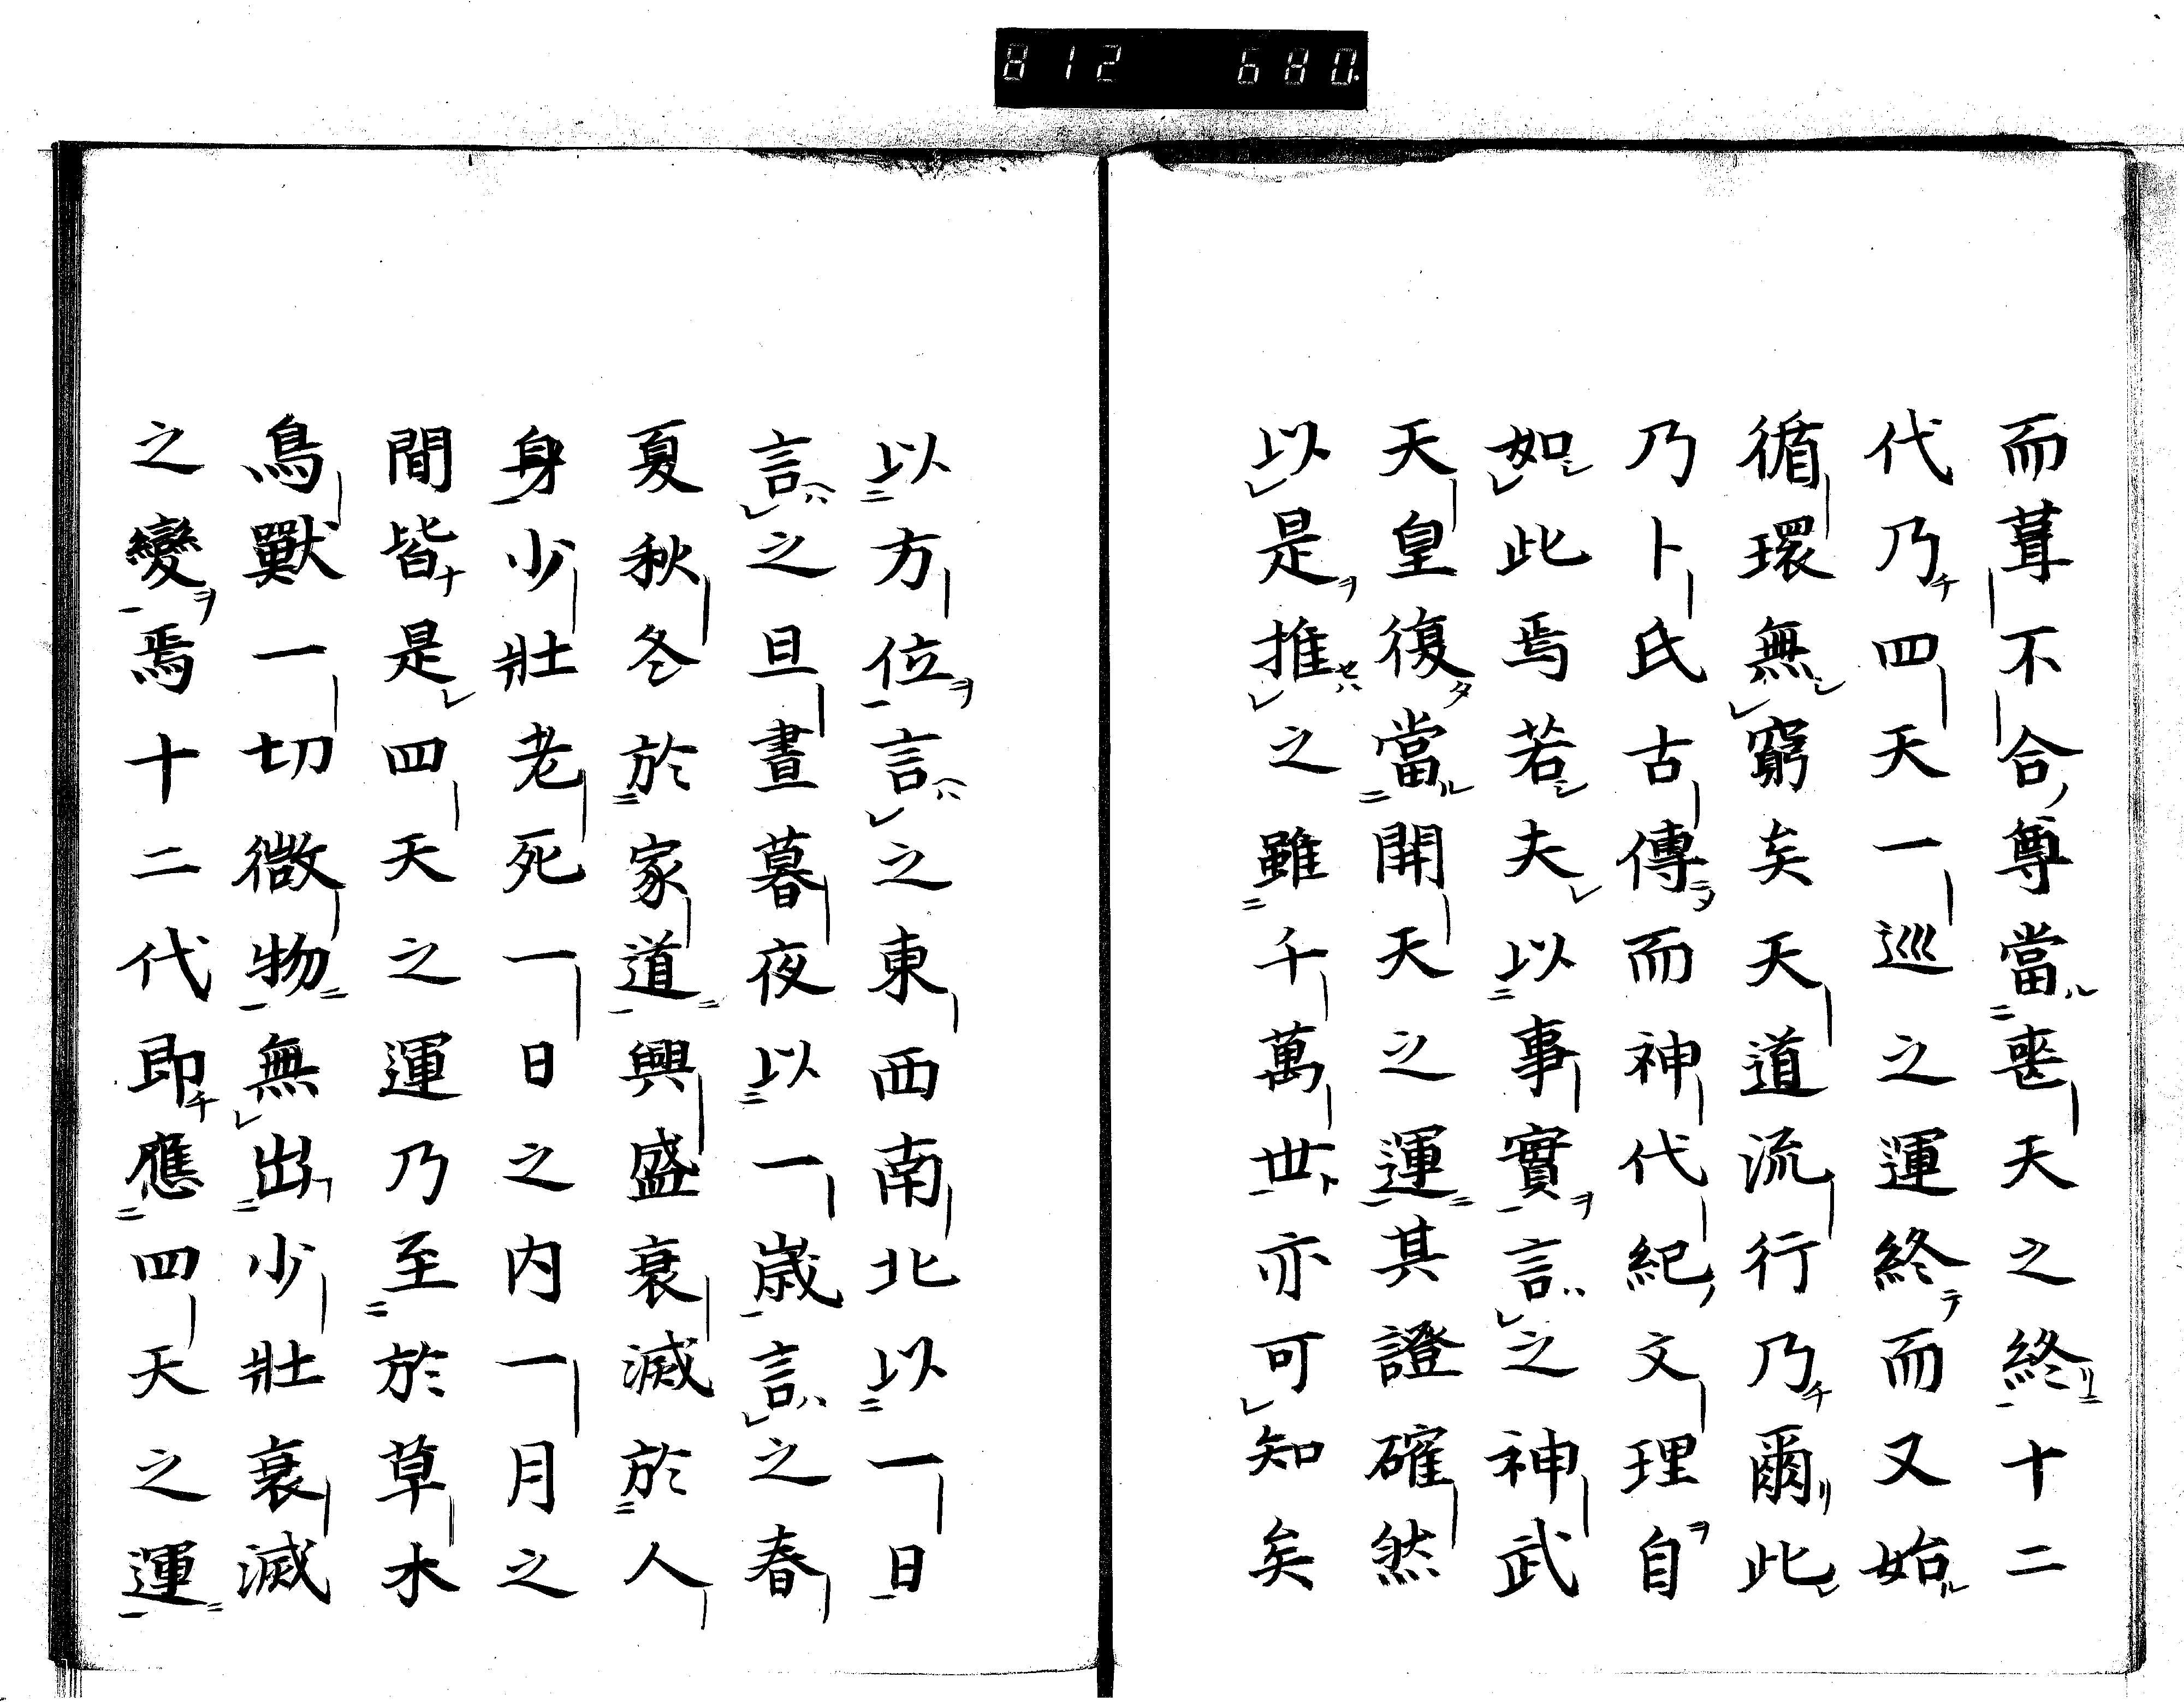 812 680.
而葺不合尊當喪天之終十二
代乃四天一巡之運終而又始
循環無窮矣天道流行乃爾此
乃卜氏古傳而神代紀文理自
如此焉若夫以事實言之神武
天皇復當開天之運其證確然
以是推之雖千萬世亦可知矣
以方位言之東西南北以一日
言之旦晝暮夜以一歳言之春
夏秋冬於家道興盛衰滅於人
身少壯老死一日之内一月之
間皆是四天之運乃至於草木
鳥獸一切微物無出少壯衰滅
之變焉十二代即應四天之運